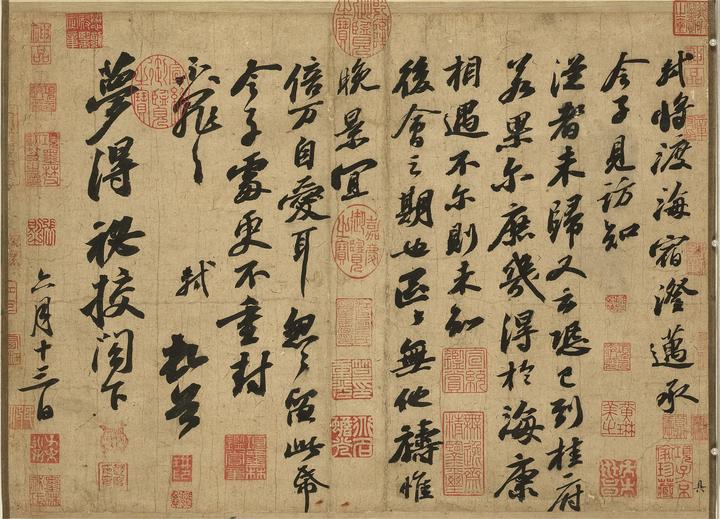 軾將渡海宿澄邁承
令子見訪知
從者未歸又云恐已到桂府
若果尔庶幾得於海康
相遇不尔則未知
後會之期也區〻無他禱惟
晚景宜
倍万自愛耳忽〻留此帋
令子處更不重封
不罪〻
軾頓首
夢得祕校閣下
六月十三日